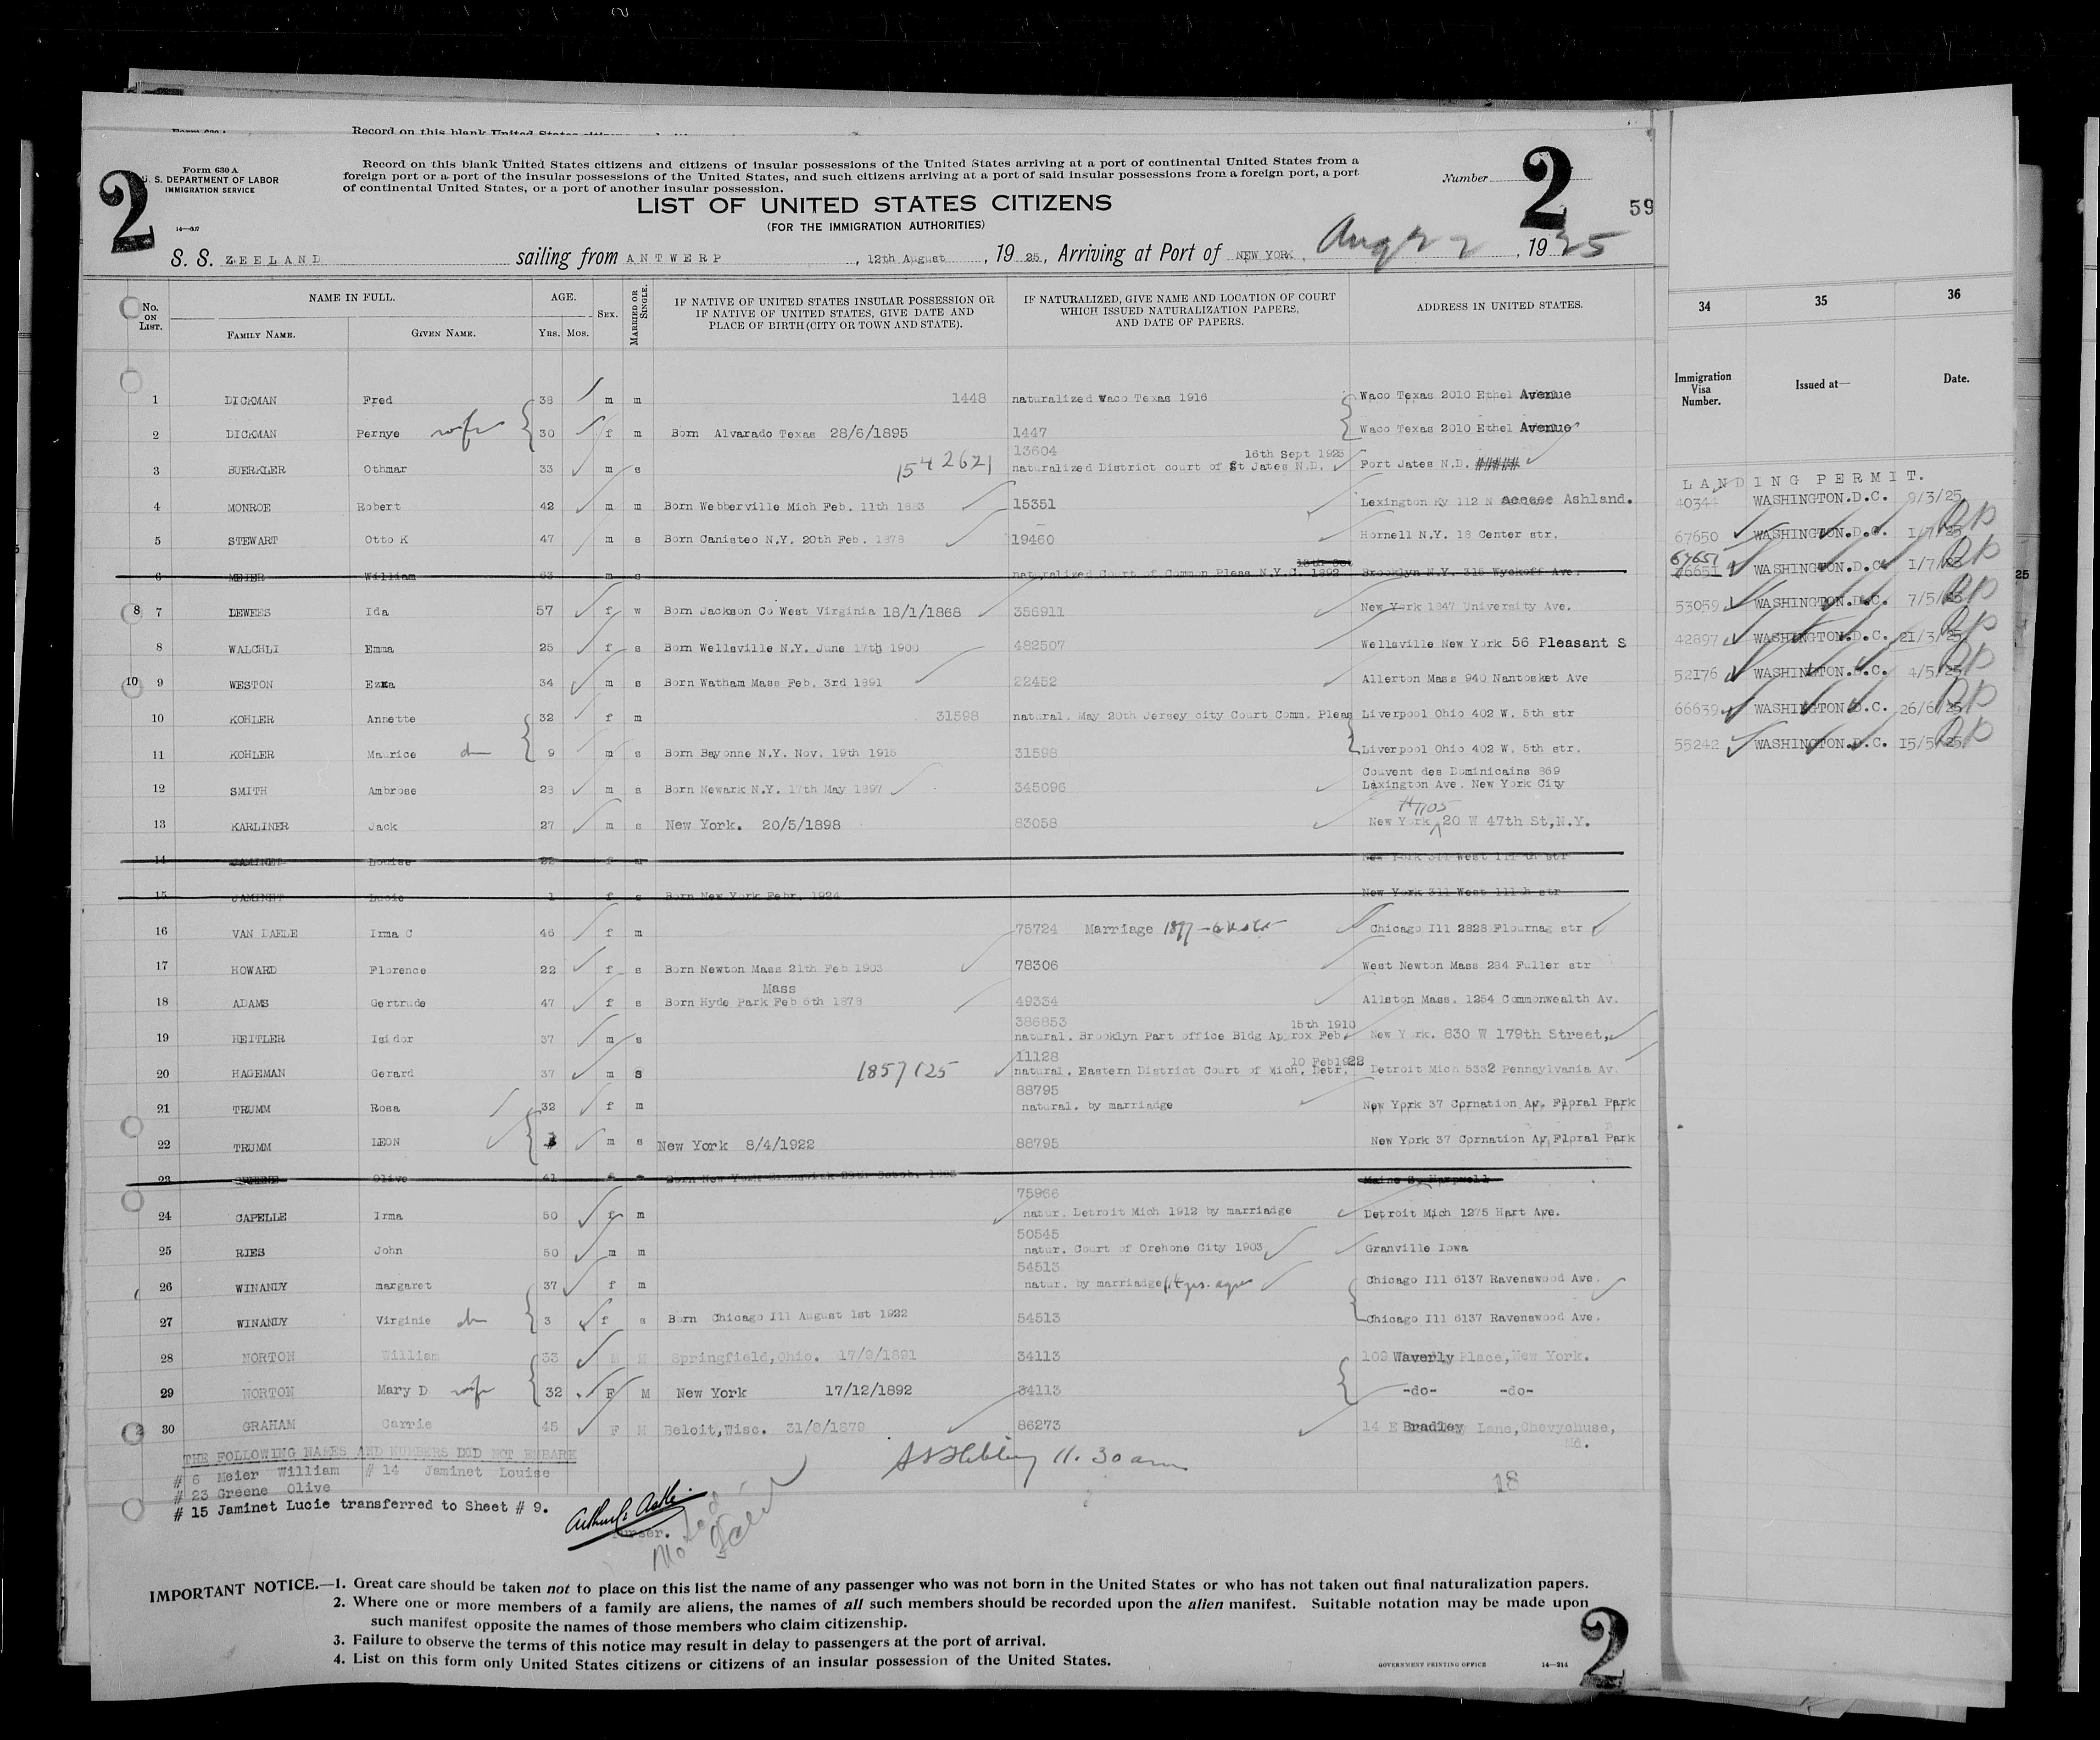 Record on this blank United States
2
Form 630 A
U. S. DEPARTMENT OF LABOR
IMMIGRATION SERVICE
Record on this blank United States citizens and citizens of insular possessions of the United States arriving at a port of continental United States from a
foreign port or a port of the insular possessions of the United States, and such citizens arriving at a port of said insular possessions from a foreign port, a port
of continental United States, or a port of another insular possession.
Number 2
59
LIST OF UNITED STATES CITIZENS
(FOR THE IMMIGRATION AUTHORITIES)
S. S. ZEELAND sailing from ANTWERP, 12th August, 19 25, Arriving at Port of NEW YORK, Aug 22, 1925
No. ON LIST. NAME IN FULL. AGE. SEX. MARRIED OR SINGLE. IF NATIVE OF UNITED STATES INSULAR POSSESSION OR IF NATIVE OF UNITED STATES, GIVE DATE AND PLACE OF BIRTH (CITY OR TOWN AND STATE). IF NATURALIZED, GIVE NAME AND LOCATION OF COURT WHICH ISSUED NATURALIZATION PAPERS, AND DATE OF PAPERS. ADDRESS IN UNITED STATES.
FAMILY NAME. GIVEN NAME. YRS. MOS.
34 35 36
Immigration Visa Number. Issued at— Date.
1 DICKMAN Fred 38 m m 1448 naturalized Waco Texas 1916 Waco Texas 2010 Ethel Avenue
2 DICKMAN Pernye wife 30 f m Born Alvarado Texas 28/6/1895 1447 Waco Texas 2010 Ethel Avenue
13604 16th Sept 1925
3 BUERKLER Othmar 33 m s 1542621 naturalized District court of St Jates N.D. Fort Jates N.D.
4 MONROE Robert 42 m m Born Webberville Mich Feb. 11th 1883 15351 Lexington Ky 112 N Ashland.
5 STEWART Otto K 47 m s Born Canisteo N.Y. 20th Feb. 1878 19460 Hornell N.Y. 18 Center str.
6 MEIER William 63 m s naturalized Court of Common Pleas N.Y.C. 1892 Brooklyn N.Y. 315 Wyckoff Ave.
8 7 LEWEES Ida 57 f w Born Jackson Co West Virginia 18/1/1868 356911 New York 1847 University Ave.
8 WALCHLI Emma 25 f s Born Wellsville N.Y. June 17th 1900 482507 Wellsville New York 56 Pleasant S
10 9 WESTON Ezra 34 m s Born Watham Mass Feb. 3rd 1891 22452 Allerton Mass 940 Nantosket Ave
10 KOHLER Annette 32 f m 31598 natural. May 20th Jersey city Court Comm. Pleas Liverpool Ohio 402 W. 5th str
11 KOHLER Maurice 9 m s Born Bayonne N.Y. Nov. 19th 1915 31598 Liverpool Ohio 402 W. 5th str.
Couvent des Dominicains 869
12 SMITH Ambrose 28 m s Born Newark N.Y. 17th May 1897 345096 Laxington Ave. New York City
13 KARLINER Jack 27 m s New York. 20/5/1898 83058 New York 20 W 47th St, N.Y.
14 JAMINET Louise 22 f
15 JAMINET Lucie 1 f s Born New York Febr. 1924 New York 311 West 111th str
16 VAN DAELE Irma C 46 f m 75724 Marriage Chicago Ill 2828 Flournag str
17 HOWARD Florence 22 f s Born Newton Mass 21th Feb 1903 78306 West Newton Mass 284 Fuller str
Mass
18 ADAMS Gertrude 47 f s Born Hyde Park Feb 6th 1878 49334 Allston Mass. 1254 Commonwealth Av.
386853 15th 1910
19 HEITLER Isidor 37 m s natural. Brooklyn Part office Bldg Approx Feb. New York. 830 W 179th Street,
11128 10 Feb1922
20 HAGEMAN Gerard 37 m s 1857125 natural. Eastern District Court of Mich, Detr. Detroit Mich 5332 Pennsylvania Av
88795
21 TRUMM Rosa 32 f m natural. by marriadge New York 37 Cornation Av. Floral Park
22 TRUMM LEON m s New York 8/4/1922 88795 New York 37 Cornation Av. Floral Park
23 GREENE Olive 41
75966
24 CAPELLE Irma 50 f m natur. Detroit Mich 1912 by marriadge Detroit Mich 1275 Hart Ave.
50545
25 RIES John 50 m m natur. Court of Orehone City 1903 Granville Iowa
54513
26 WINANDY margaret 37 f m natur. by marriadge Chicago Ill 6137 Ravenswood Ave.
27 WINANDY Virginie 3 f s Born Chicago Ill August 1st 1922 54513 Chicago Ill 6137 Ravenswood Ave.
28 NORTON William 33 M M Springfield, Ohio. 17/9/1891 34113 109 Waverly Place, New York.
29 NORTON Mary D wife 32 F M New York 17/12/1892 34113 -do- -do-
30 GRAHAM Carrie 45 F M Beloit, Wisc. 31/8/1879 86273 14 E Bradley Lane, Chevychuse,
Md.
LANDING PERMIT.
40344 WASHINGTON.D.C. 9/3/25
67650 WASHINGTON.D.C. I/7/25
67651
WASHINGTON.D.C. I/7/25
53059 WASHINGTON.D.C. 7/5/25
42897 WASHINGTON.D.C. 2I/3/25
52176 WASHINGTON.D.C. 4/5/25
66639 WASHINGTON D.C. 26/6/25
55242 WASHINGTON.D.C. I5/5/25
25
THE FOLLOWING NAMES AND NUMBERS DID NOT EMBARK
# 6 Meier William # 14 Jaminet Louise
# 23 Greene Olive
# 15 Jaminet Lucie transferred to Sheet # 9.
Purser.
11.30 am
18
IMPORTANT NOTICE.—1. Great care should be taken not to place on this list the name of any passenger who was not born in the United States or who has not taken out final naturalization papers.
2. Where one or more members of a family are aliens, the names of all such members should be recorded upon the alien manifest. Suitable notation may be made upon
such manifest opposite the names of those members who claim citizenship.
3. Failure to observe the terms of this notice may result in delay to passengers at the port of arrival.
4. List on this form only United States citizens or citizens of an insular possession of the United States.
GOVERNMENT PRINTING OFFICE 14—214
2